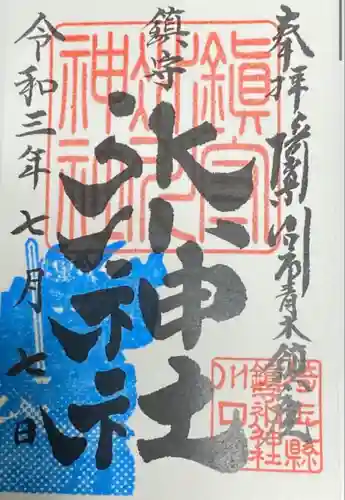 奉拝
川口市青木鎮座
鎮守
氷川神社
令和三年七月七日
鎮守氷川神社
埼玉県
川口
鎮守氷川神社